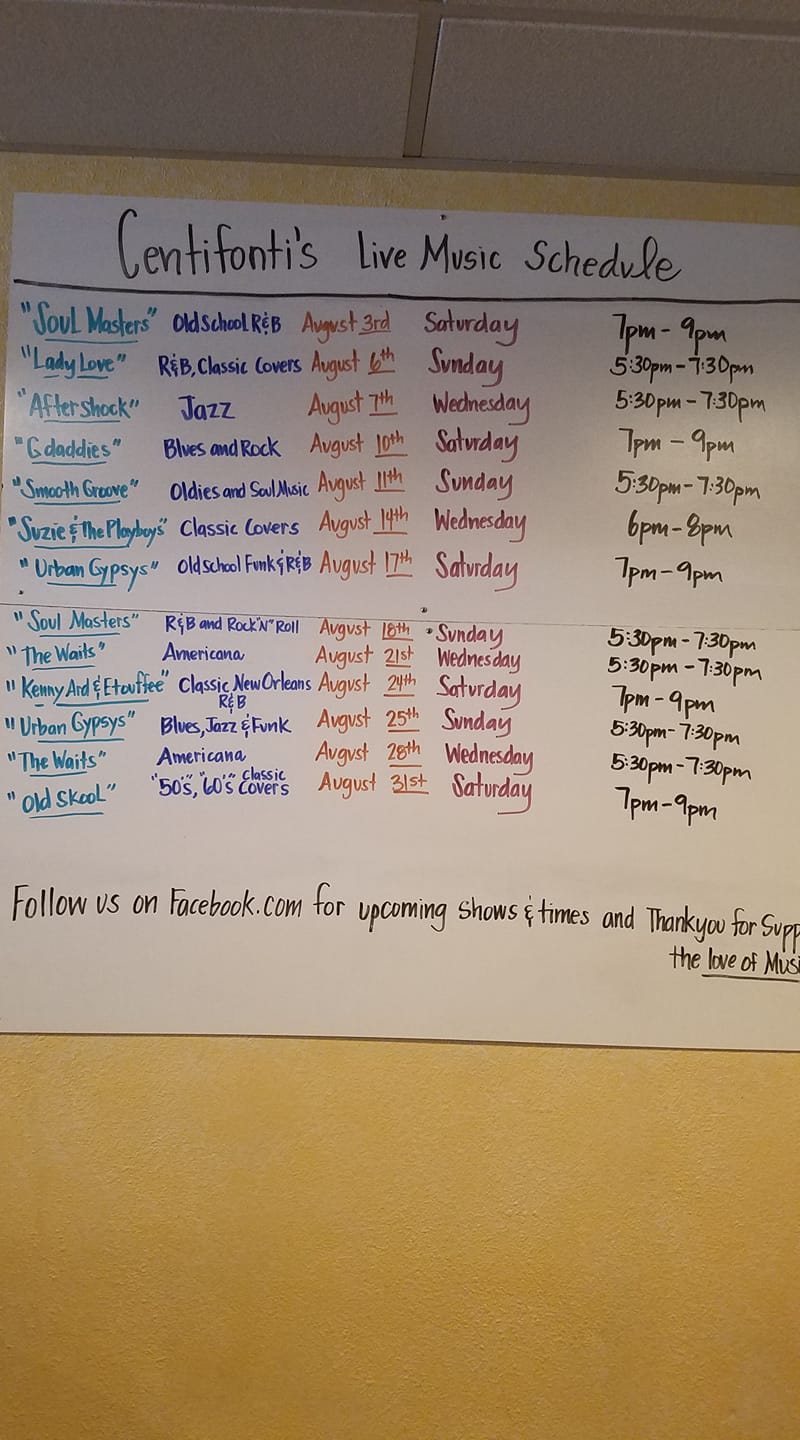 Centifonti's Live Music Schedule
"Soul Masters" Old School R&B August 3rd Saturday 7pm - 9pm
"Lady Love" R&B, Classic Covers August 6th Sunday 5:30pm - 7:30pm
"Aftershock" Jazz August 7th Wednesday 5:30pm - 7:30pm
"Gdaddies" Blues and Rock August 10th Saturday 7pm - 9pm
"Smooth Groove" Oldies and Soul Music August 11th Sunday 5:30pm - 7:30pm
"Suzie & The Playboys" Classic Covers August 14th Wednesday 6pm - 8pm
"Urban Gypsys" Old School Funk & R&B August 17th Saturday 7pm - 9pm
"Soul Masters" R&B and Rock "N" Roll August 18th Sunday 5:30pm - 7:30pm
"The Waits" Americana August 21st Wednesday 5:30pm - 7:30pm
"Kenny Ard & Etouffee" Classic New Orleans R&B August 24th Saturday 7pm - 9pm
"Urban Gypsys" Blues, Jazz & Funk August 25th Sunday 5:30pm - 7:30pm
"The Waits" Americana August 28th Wednesday 5:30pm - 7:30pm
"Old Skool" "50's", "60's" Classic Covers August 31st Saturday 7pm - 9pm
Follow us on Facebook.com for upcoming shows & times and Thankyou for Supp
the love of Musi